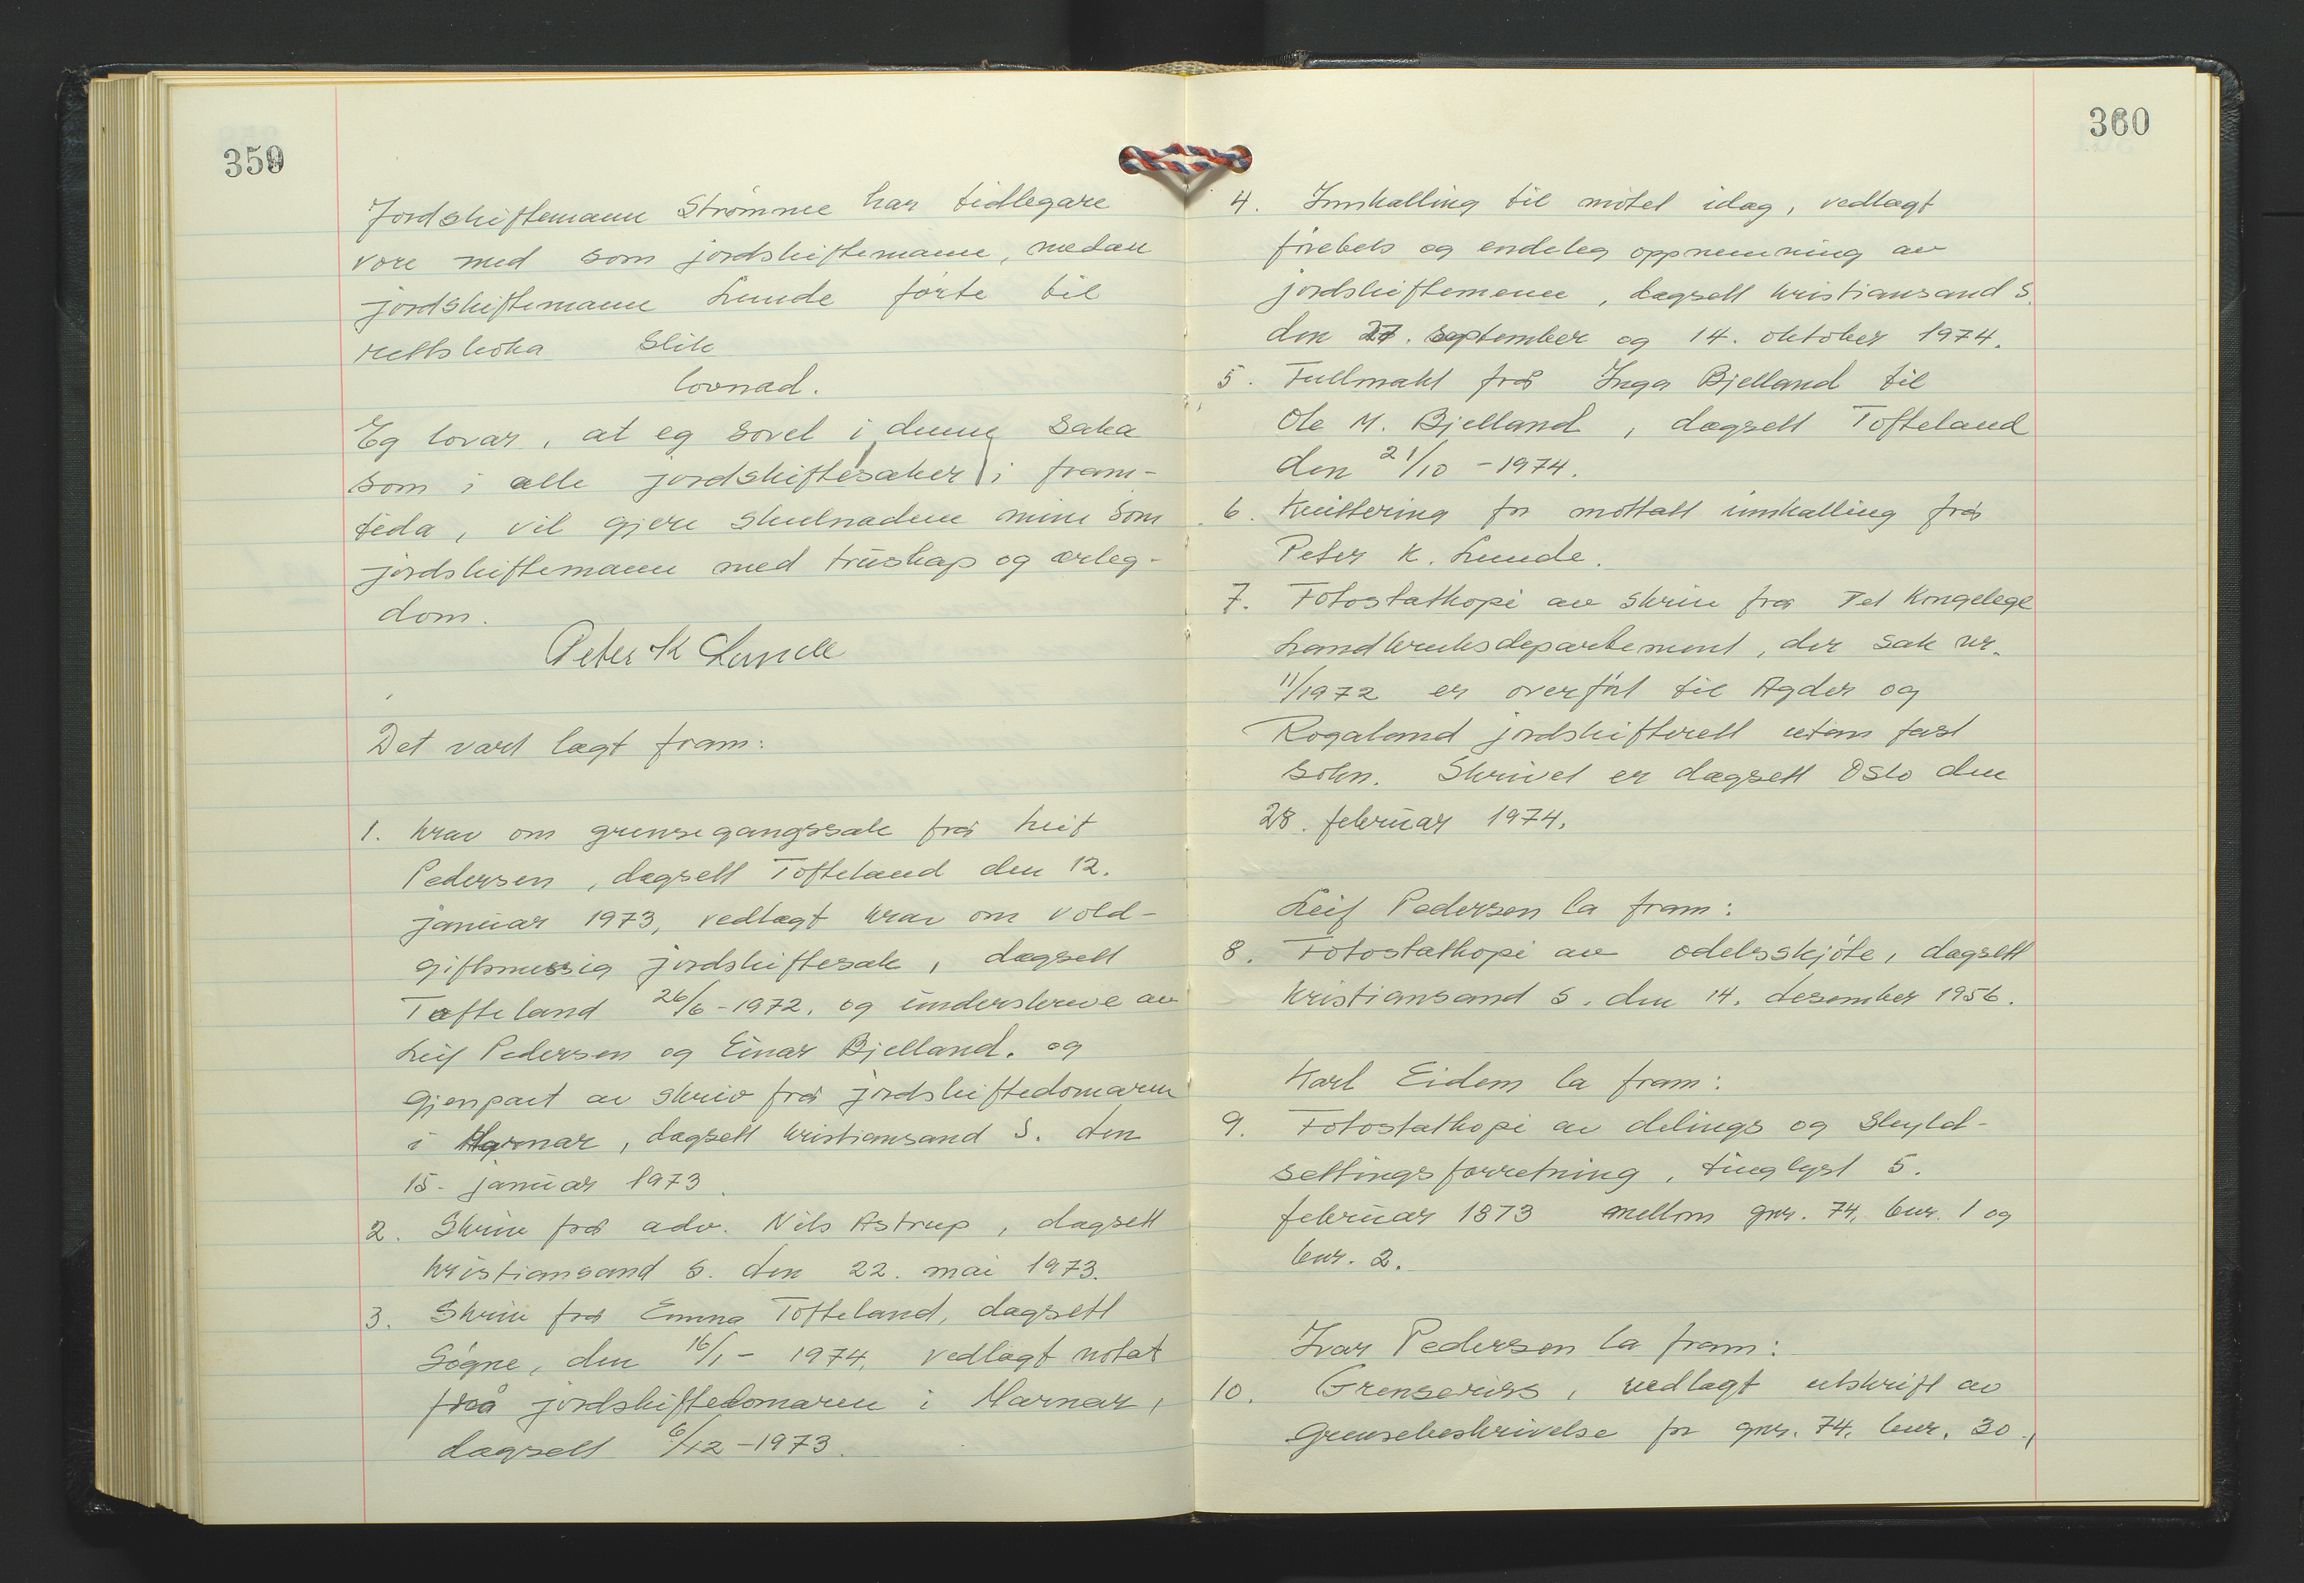 359
Jordskiftemann Strømme har tidlegare
vore med som jordskiftemann, medan
jordskiftemann Lunde førte til
rettsboka slik
lovnad.
Eg lovar, at eg sovel i denne saka
som i alle jordskiftesaker i fram-
tida, vil gjere skulnadene mine som
jordskiftemann med truskap og ærleg-
dom.
Peter K Lunde
Det vart lagt fram:
1. Krav om grensegangssak frå Leif
Pedersen, dagsett Tofteland den 12.
januar 1973, vedlagt krav om vold-
giftsmessig jordskiftesak, dagsett
Tofteland 26/6-1972. og underskreve av
Leif Pedersen og Einar Bjelland. og
gjenpart av skriv frå jordskiftedomaren
i Marnar, dagsett Kristiansand S. den
15. januar 1973.
2. Skriv frå adv. Nils Astrup, dagsett
Kristiansand S. den 22. mai 1973.
3. Skriv frå Emma Tofteland, dagsett
Søgne, den 16/1- 1974, vedlagt notat
frå jordskiftedomaren i Marnar,
dagsett 6/12-1973.
360
4. Innkalling til møtet idag, vedlagt
førebels og endeleg oppnemning av
jordskiftemenn, dagsett Kristiansand S.
den 27. september og 14. oktober 1974.
5. Fullmakt frå Inga Bjelland til
Ole M. Bjelland, dagsett Tofteland
den 21/10-1974.
6. Kvittering for mottatt innkalling frå
Peter K. Lunde.
7. Fotostatkopi av skriv frå Det Kongelege
Landbruksdepartement, der sak nr.
11/1972 er overført til Agder og
Rogaland jordskifterett utan fast
sokn. Skrivet er dagsett Oslo den
28. februar 1974.
Leif Pedersen la fram:
8. Fotostatkopi av odelsskjøte, dagsett
Kristiansand S. den 14. desember 1956.
Karl Eidem la fram:
9. Fotostatkopi av delings og skyld-
settingsforretning, tinglyst 5.
februar 1873 mellom gnr. 74, bnr. 1 og
bnr. 2.
Ivar Pedersen la fram:
10. Grenseriss, vedlagt utskrift av
grensebeskrivelse for gnr. 74, bnr. 30.,